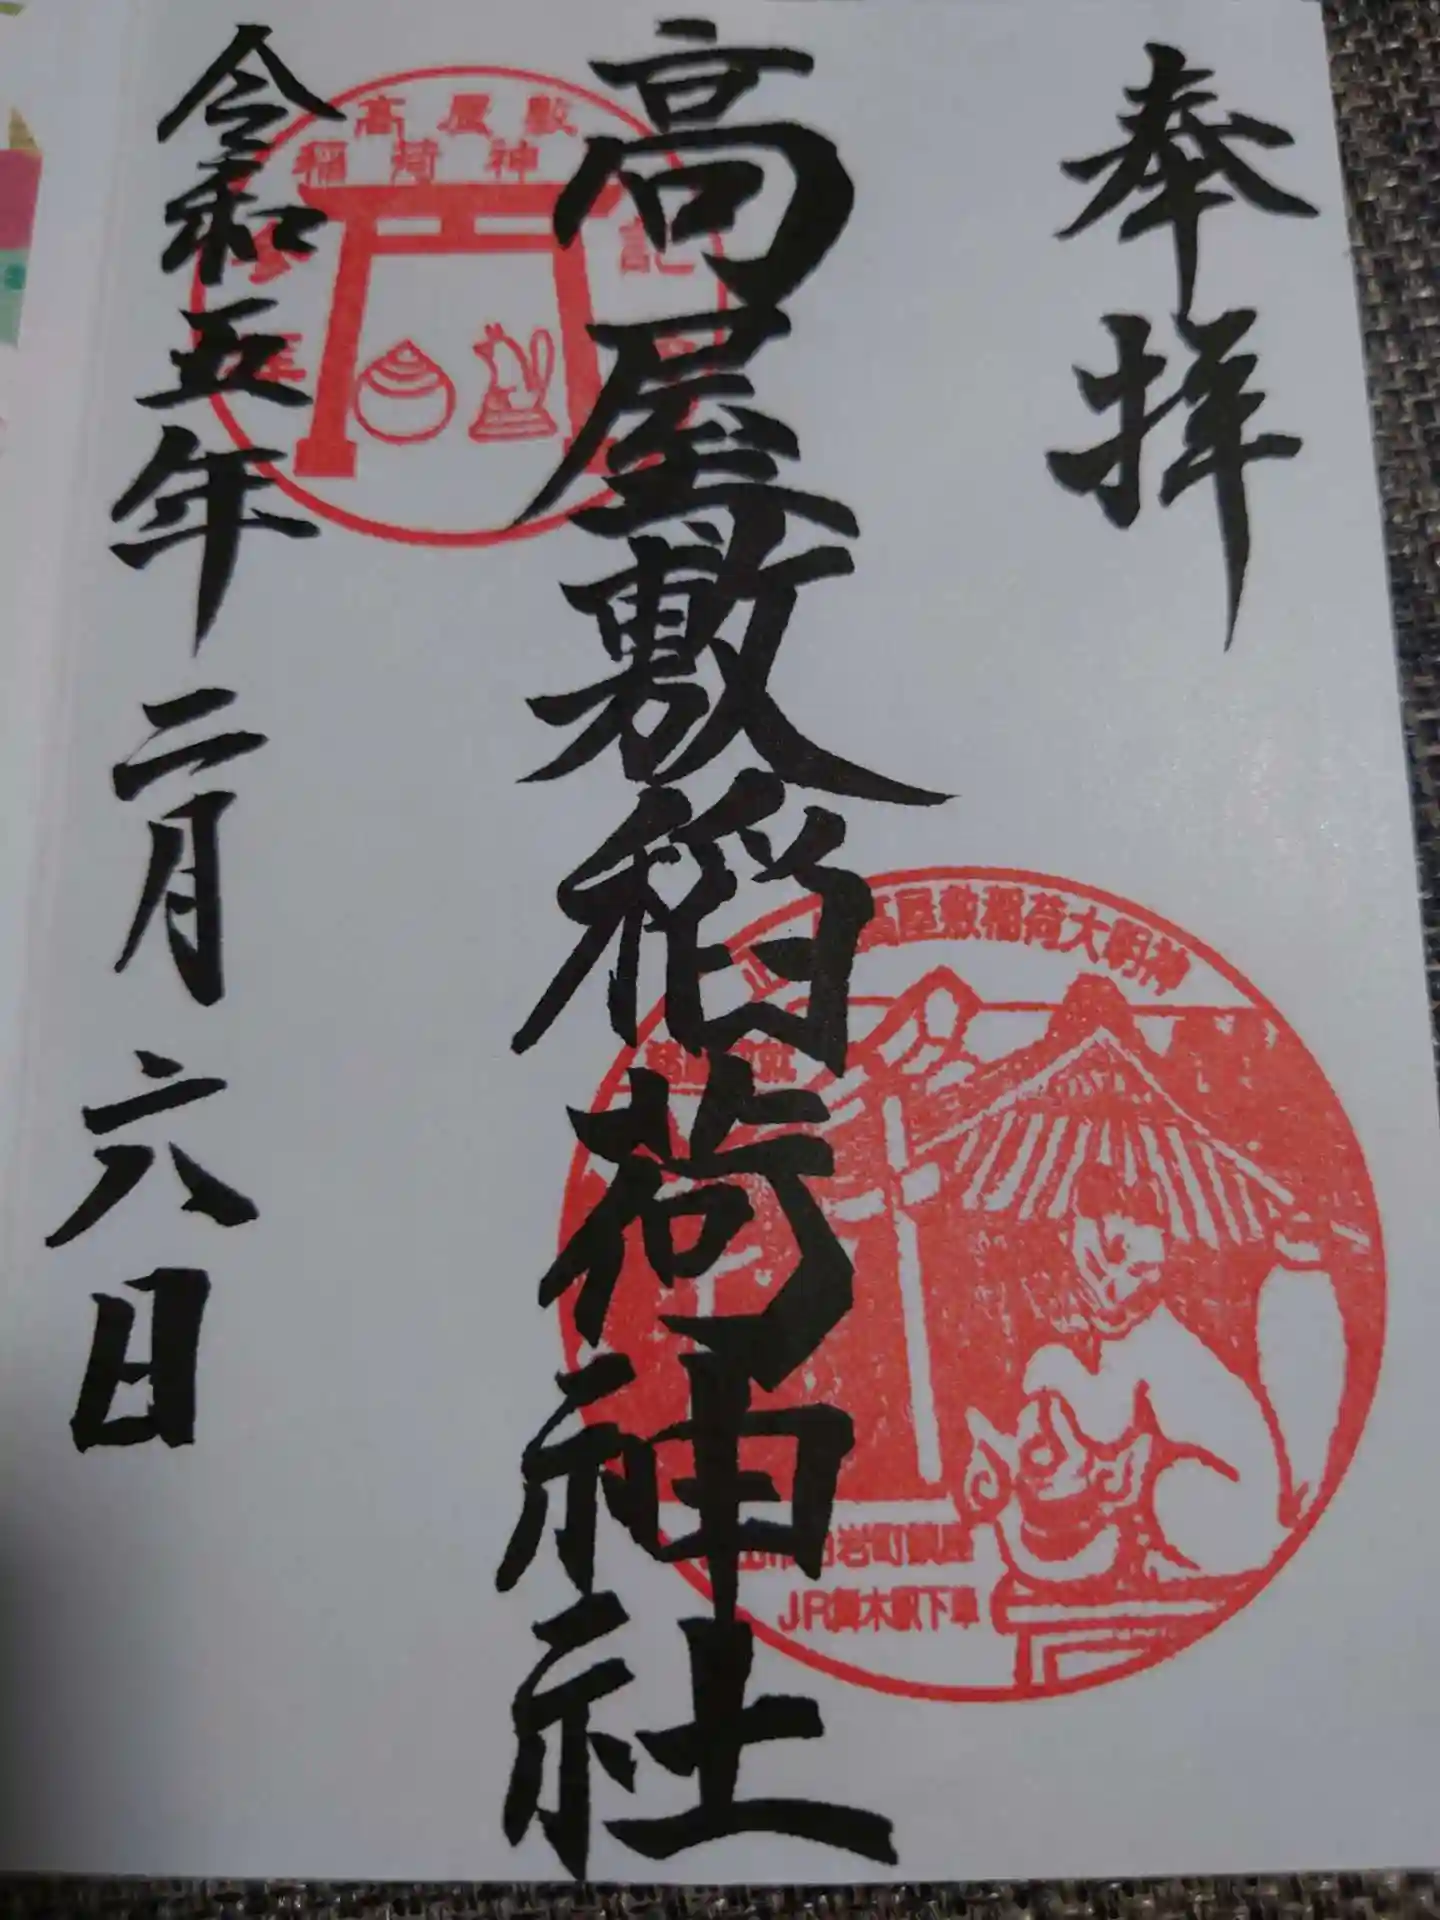 奉拝
高屋敷稲荷神社
令和五年二月六日
高屋敷
稲荷神
記
高屋敷稲荷大明神
岩町鎮座
JR舞木駅下車